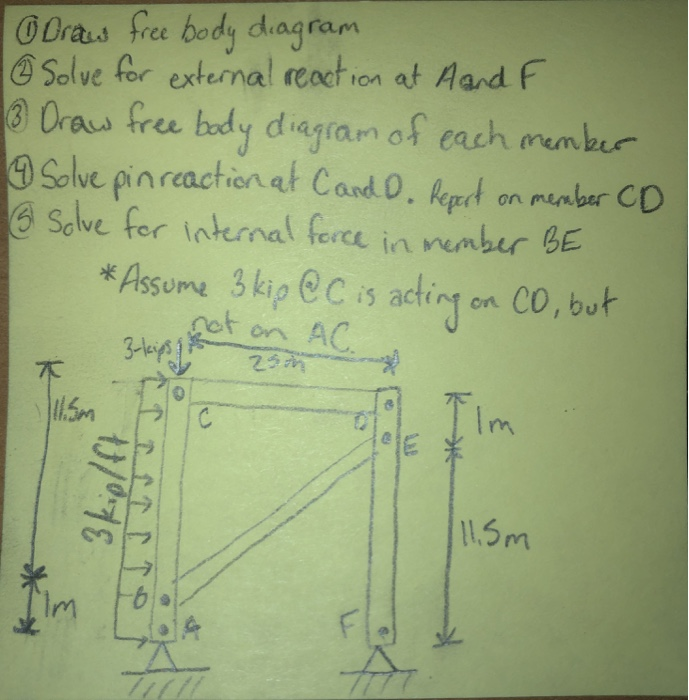 ① Draw free body diagram
② Solve for external reaction at A and F
③ Draw free body diagram of each member
④ Solve pin reaction at C and D. Report on member CD
⑤ Solve for internal force in member BE
*Assume 3 kip @ C is acting on CD, but
not on AC.
3-kips
25m
11.5m
C
D
1m
E
3 kip/ft
11.5m
B
1m
A
F